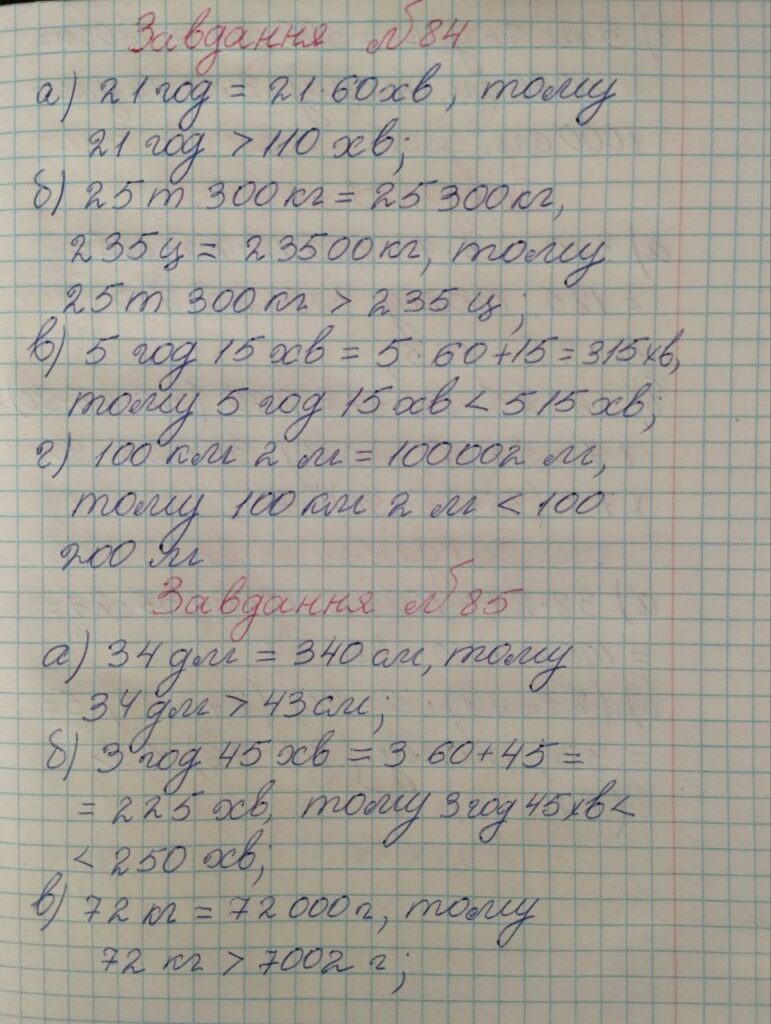 Завдання №84
а) 21 год = 21·60хв, тому
21 год > 110 хв;
б) 25т 300кг = 25300кг,
235ц = 23500кг, тому
25т 300кг > 235ц;
в) 5 год 15хв = 5·60+15=315хв,
тому 5 год 15хв < 515хв;
г) 100км 2м = 100002м,
тому 100км 2м < 100
200м
Завдання №85
а) 34дм = 340см, тому
34дм > 43см;
б) 3 год 45хв = 3·60+45=
= 225 хв, тому 3год 45хв<
< 250 хв;
в) 72кг = 72000г, тому
72 кг > 7002 г;